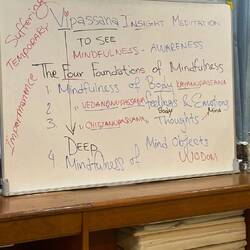 Vipassana Insight Meditation
TO SEE
MINDFULNESS - AWARENESS
The Four Foundations of Mindfulness
1. Mindfulness of Body KAYANUPASSANA
2. " VEDANANUPASSANA Feelings & Emotions
Body
Mind
3. " CHITTANUPASSANA Thoughts
DEEP
4. Mindfulness of Mind Objects
WISDOM
Suffering
TEMPORARY
Impermanence